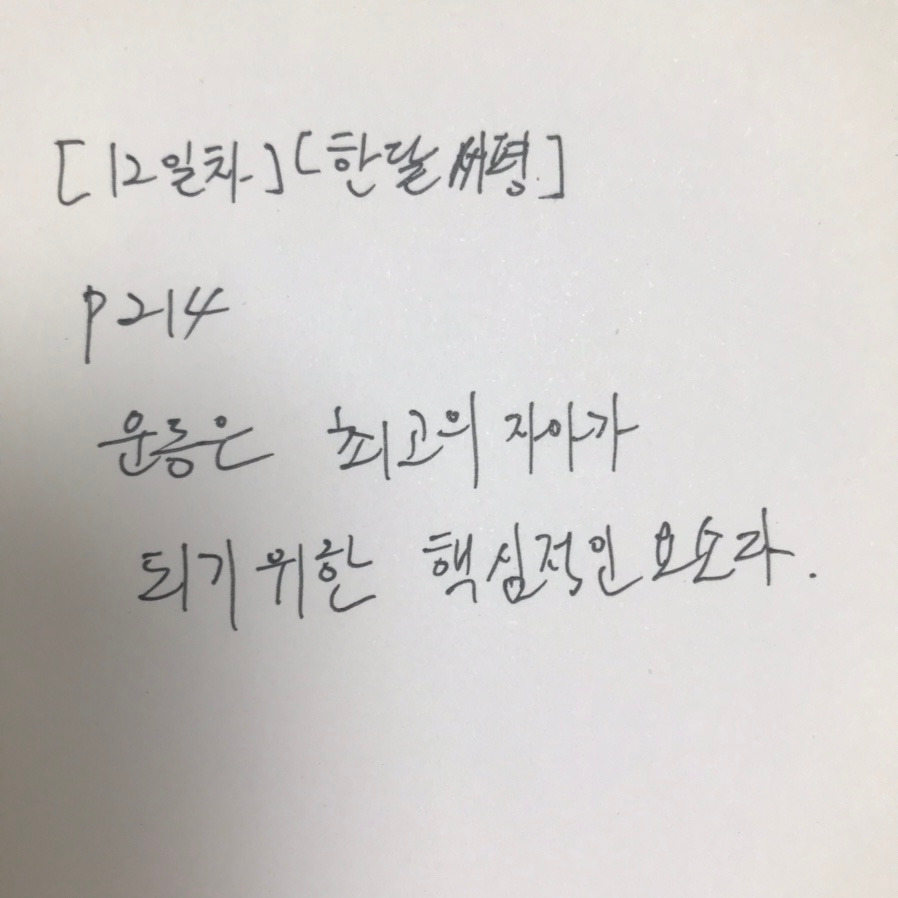 [12일차][한달서평]
P214
운동은 최고의 자아가
되기 위한 핵심적인 요소라.